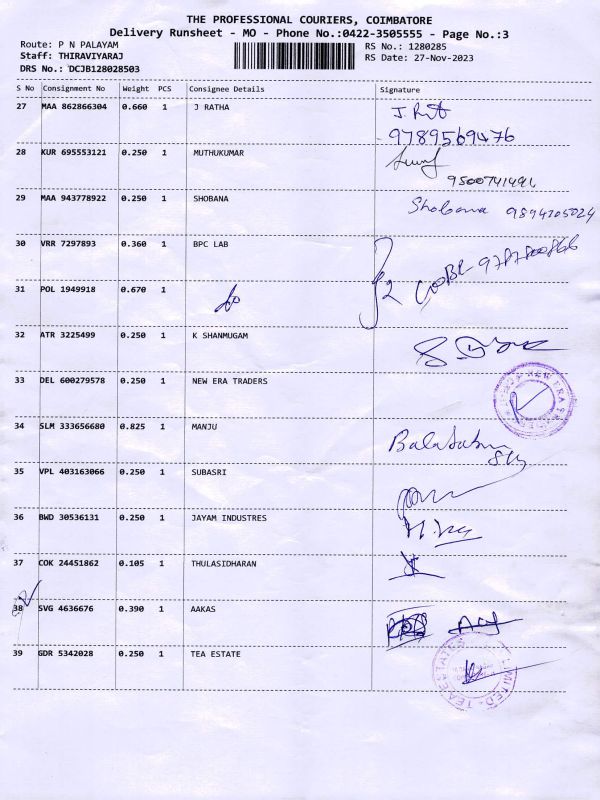 THE PROFESSIONAL COURIERS, COIMBATORE
Delivery Runsheet - MO - Phone No.:0422-3505555 - Page No.:3
Route: P N PALAYAM
Staff: THIRAVIYARAJ
DRS No.: DCJB128028503
RS No.: 1280285
RS Date: 27-Nov-2023
S No Consignment No Weight PCS Consignee Details Signature
27 MAA 862866304 0.660 1 J RATHA
9789569476
28 KUR 695553121 0.250 1 MUTHUKUMAR
29 MAA 943778922 0.250 1 SHOBANA Shobana
30 VRR 7297893 0.360 1 BPC LAB
31 POL 1949918 0.670 1
32 ATR 3225499 0.250 1 K SHANMUGAM
33 DEL 600279578 0.250 1 NEW ERA TRADERS
34 SLM 333656680 0.825 1 MANJU
35 VPL 403163066 0.250 1 SUBASRI
36 BWD 30536131 0.250 1 JAYAM INDUSTRES
37 COK 24451862 0.105 1 THULASIDHARAN
38 SVG 4636676 0.390 1 AAKAS
39 GDR 5342028 0.250 1 TEA ESTATE